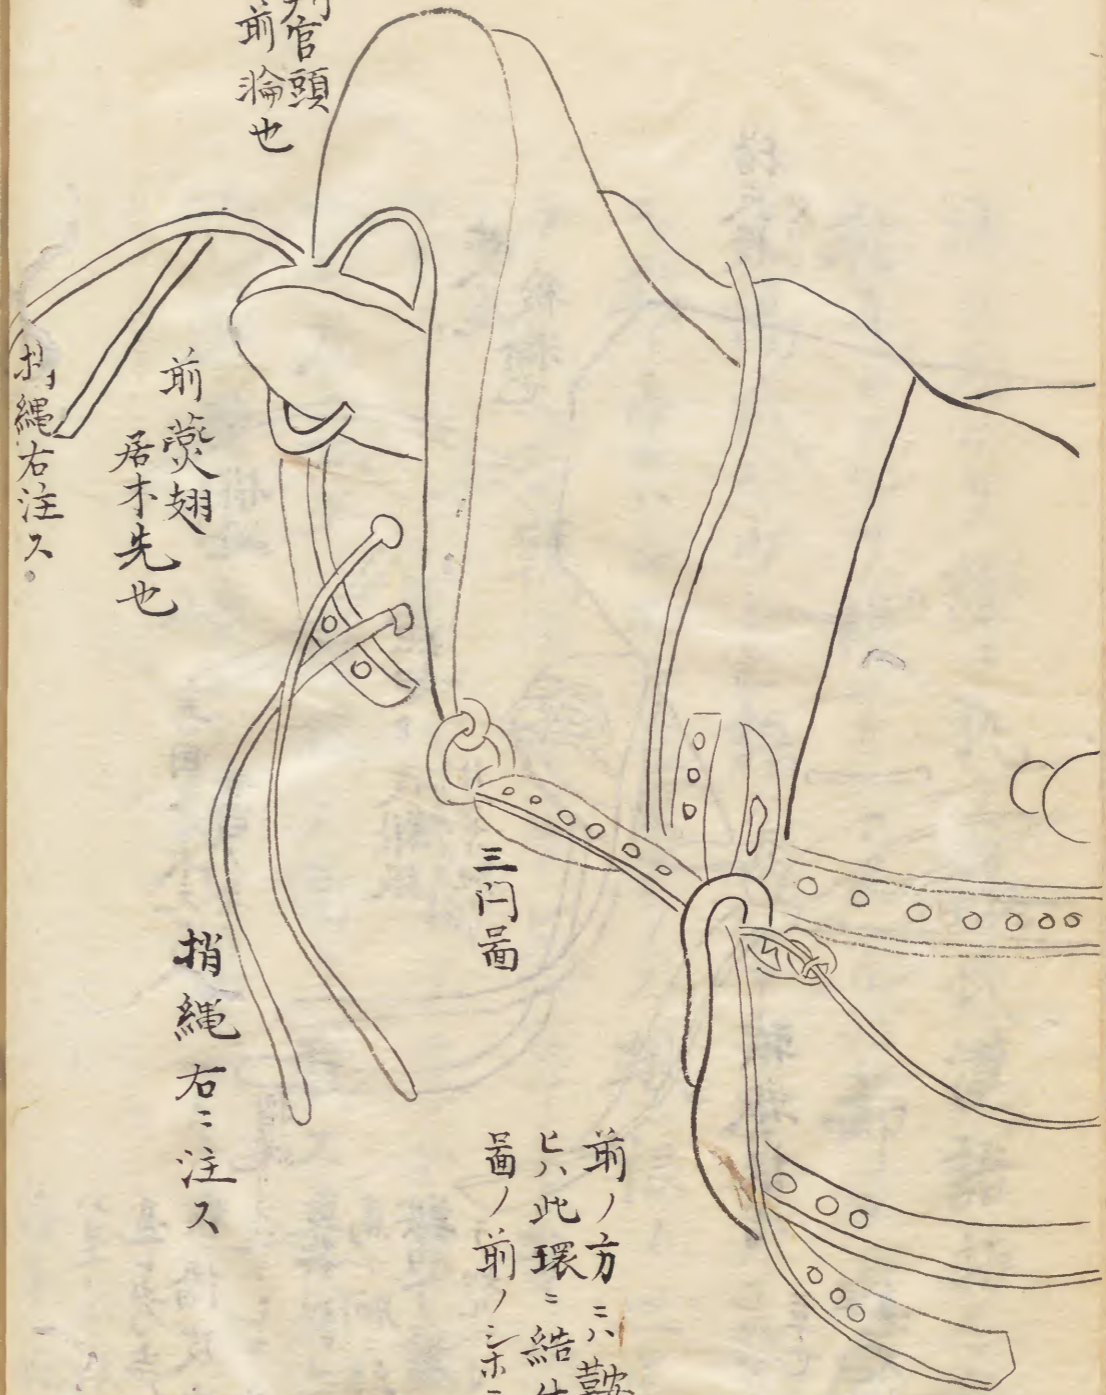 官頭
前淪也
前㷼翅
居木先也
縄右注ス。
三閂啚
捎縄右ニ注ス
前ノ方ニハ鞍
ヒハ此環ニ結
啚ノ前ノシホ